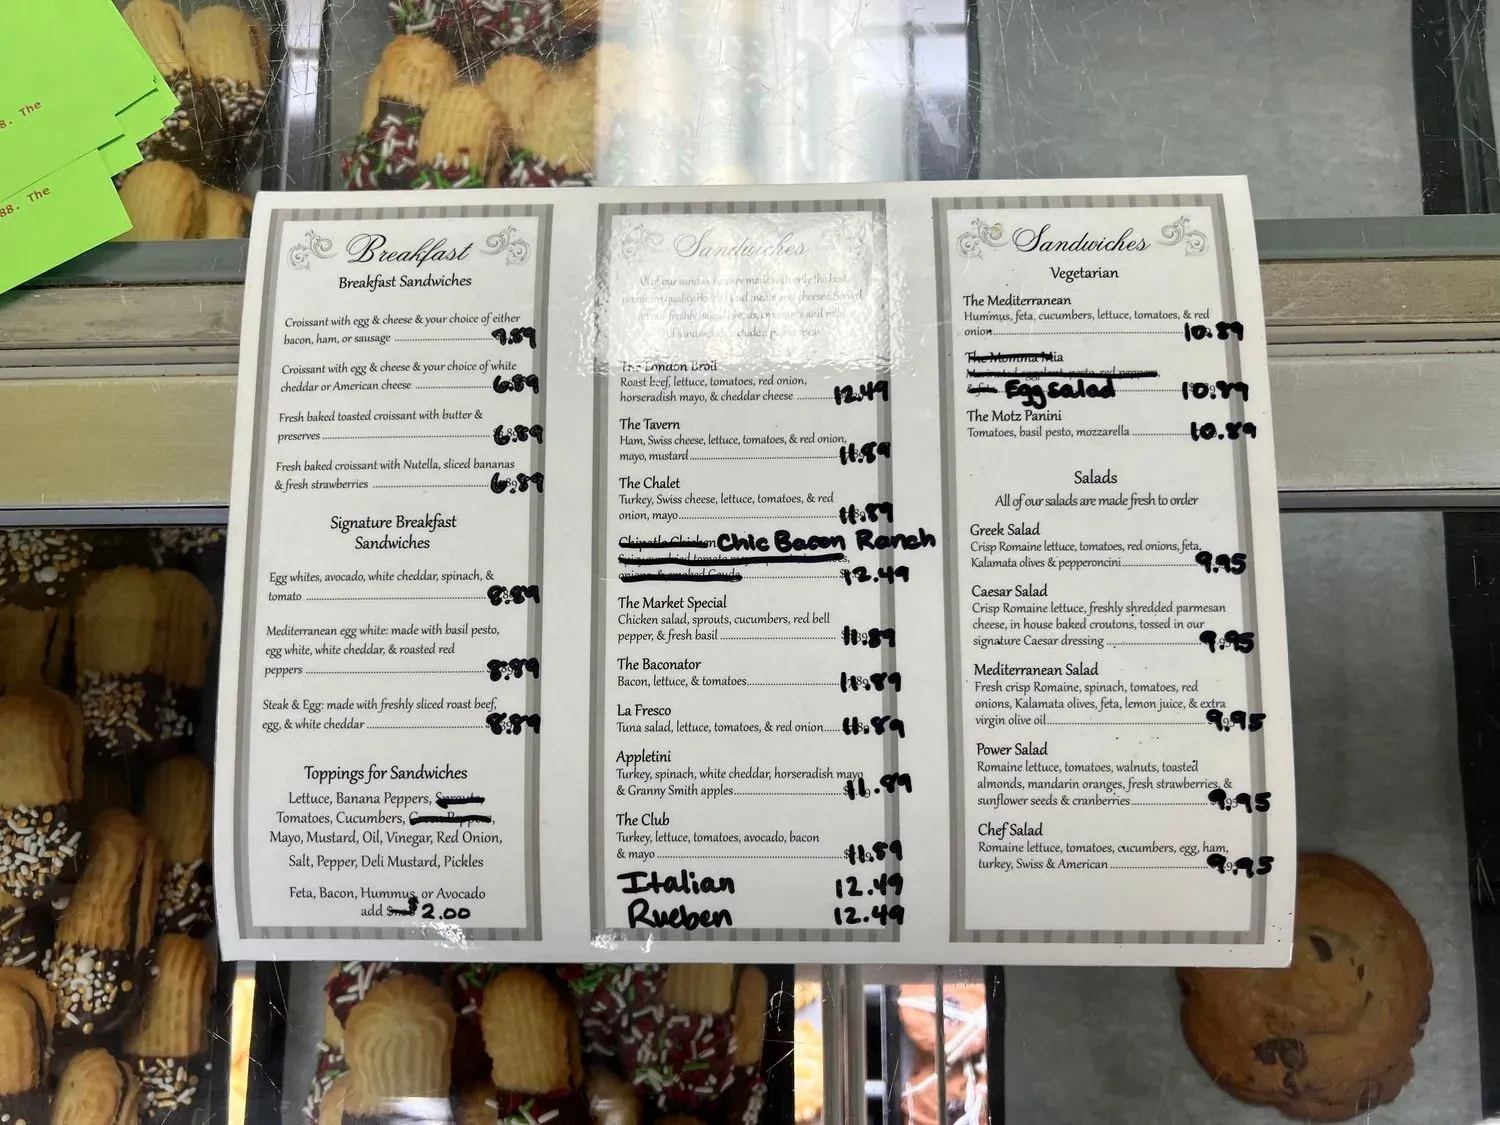 8. The
88. The
Breakfast
Breakfast Sandwiches
Croissant with egg & cheese & your choice of either
bacon, ham, or sausage 7.89
Croissant with egg & cheese & your choice of white
cheddar or American cheese 6.89
Fresh baked toasted croissant with butter &
preserves 6.89
Fresh baked croissant with Nutella, sliced bananas
& fresh strawberries 6.89
Signature Breakfast
Sandwiches
Egg whites, avocado, white cheddar, spinach, &
tomato 8.89
Mediterranean egg white: made with basil pesto,
egg white, white cheddar, & roasted red
peppers 8.89
Steak & Egg: made with freshly sliced roast beef,
egg, & white cheddar 8.89
Toppings for Sandwiches
Lettuce, Banana Peppers, Sprouts,
Tomatoes, Cucumbers, Green Peppers,
Mayo, Mustard, Oil, Vinegar, Red Onion,
Salt, Pepper, Deli Mustard, Pickles
Feta, Bacon, Hummus, or Avocado
add $2.00
Sandwiches
All of our sandwiches are made with only the best
premium quality meats and cheeses. Served
on our freshly baked breads, croissants and rolls.
All sandwiches include a
The London Broil
Roast beef, lettuce, tomatoes, red onion,
horseradish mayo, & cheddar cheese 12.49
The Tavern
Ham, Swiss cheese, lettuce, tomatoes, & red onion,
mayo, mustard 11.89
The Chalet
Turkey, Swiss cheese, lettuce, tomatoes, & red
onion, mayo 11.89
Chipotle Chicken Chic Bacon Ranch
12.49
The Market Special
Chicken salad, sprouts, cucumbers, red bell
pepper, & fresh basil 11.89
The Baconator
Bacon, lettuce, & tomatoes 11.89
La Fresco
Tuna salad, lettuce, tomatoes, & red onion 11.89
Appletini
Turkey, spinach, white cheddar, horseradish mayo
& Granny Smith apples 11.89
The Club
Turkey, lettuce, tomatoes, avocado, bacon
& mayo 11.89
Italian 12.49
Rueben 12.49
Sandwiches
Vegetarian
The Mediterranean
Hummus, feta, cucumbers, lettuce, tomatoes, & red
onion 10.89
The Momma Mia
Marinated eggplant, pesto, red peppers,
Egg salad 10.89
The Motz Panini
Tomatoes, basil pesto, mozzarella 10.89
Salads
All of our salads are made fresh to order
Greek Salad
Crisp Romaine lettuce, tomatoes, red onions, feta,
Kalamata olives & pepperoncini 9.95
Caesar Salad
Crisp Romaine lettuce, freshly shredded parmesan
cheese, in house baked croutons, tossed in our
signature Caesar dressing 9.95
Mediterranean Salad
Fresh crisp Romaine, spinach, tomatoes, red
onions, Kalamata olives, feta, lemon juice, & extra
virgin olive oil 9.95
Power Salad
Romaine lettuce, tomatoes, walnuts, toasted
almonds, mandarin oranges, fresh strawberries, &
sunflower seeds & cranberries 9.95
Chef Salad
Romaine lettuce, tomatoes, cucumbers, egg, ham,
turkey, Swiss & American 9.95